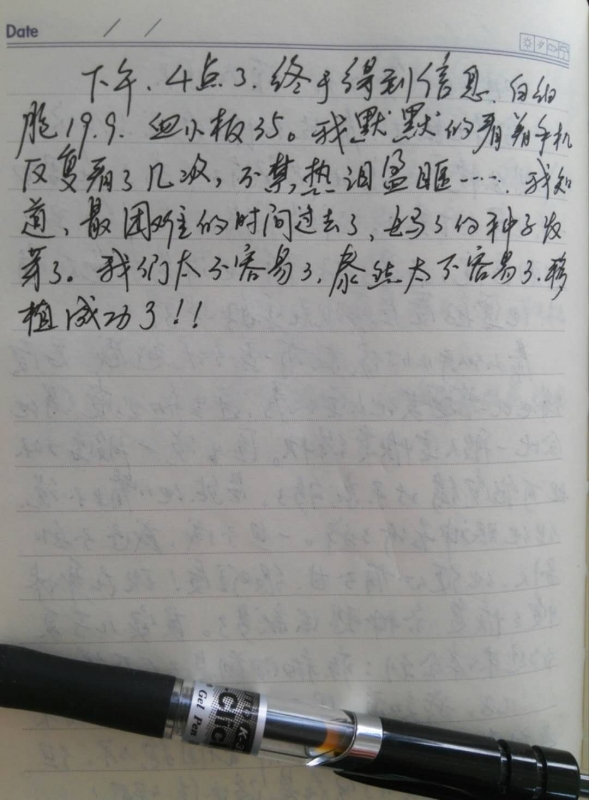 Date / /
下午.4点了.终于得到信息.白细
胞19.9.血小板35。我默默的看着手机
反复看了几次,不禁热泪盈眶……我知
道,最困难的时间过去了,妈妈的种子发
芽了。我们太不容易了,泰然太不容易了.移
植成功了!!
Gel Pen